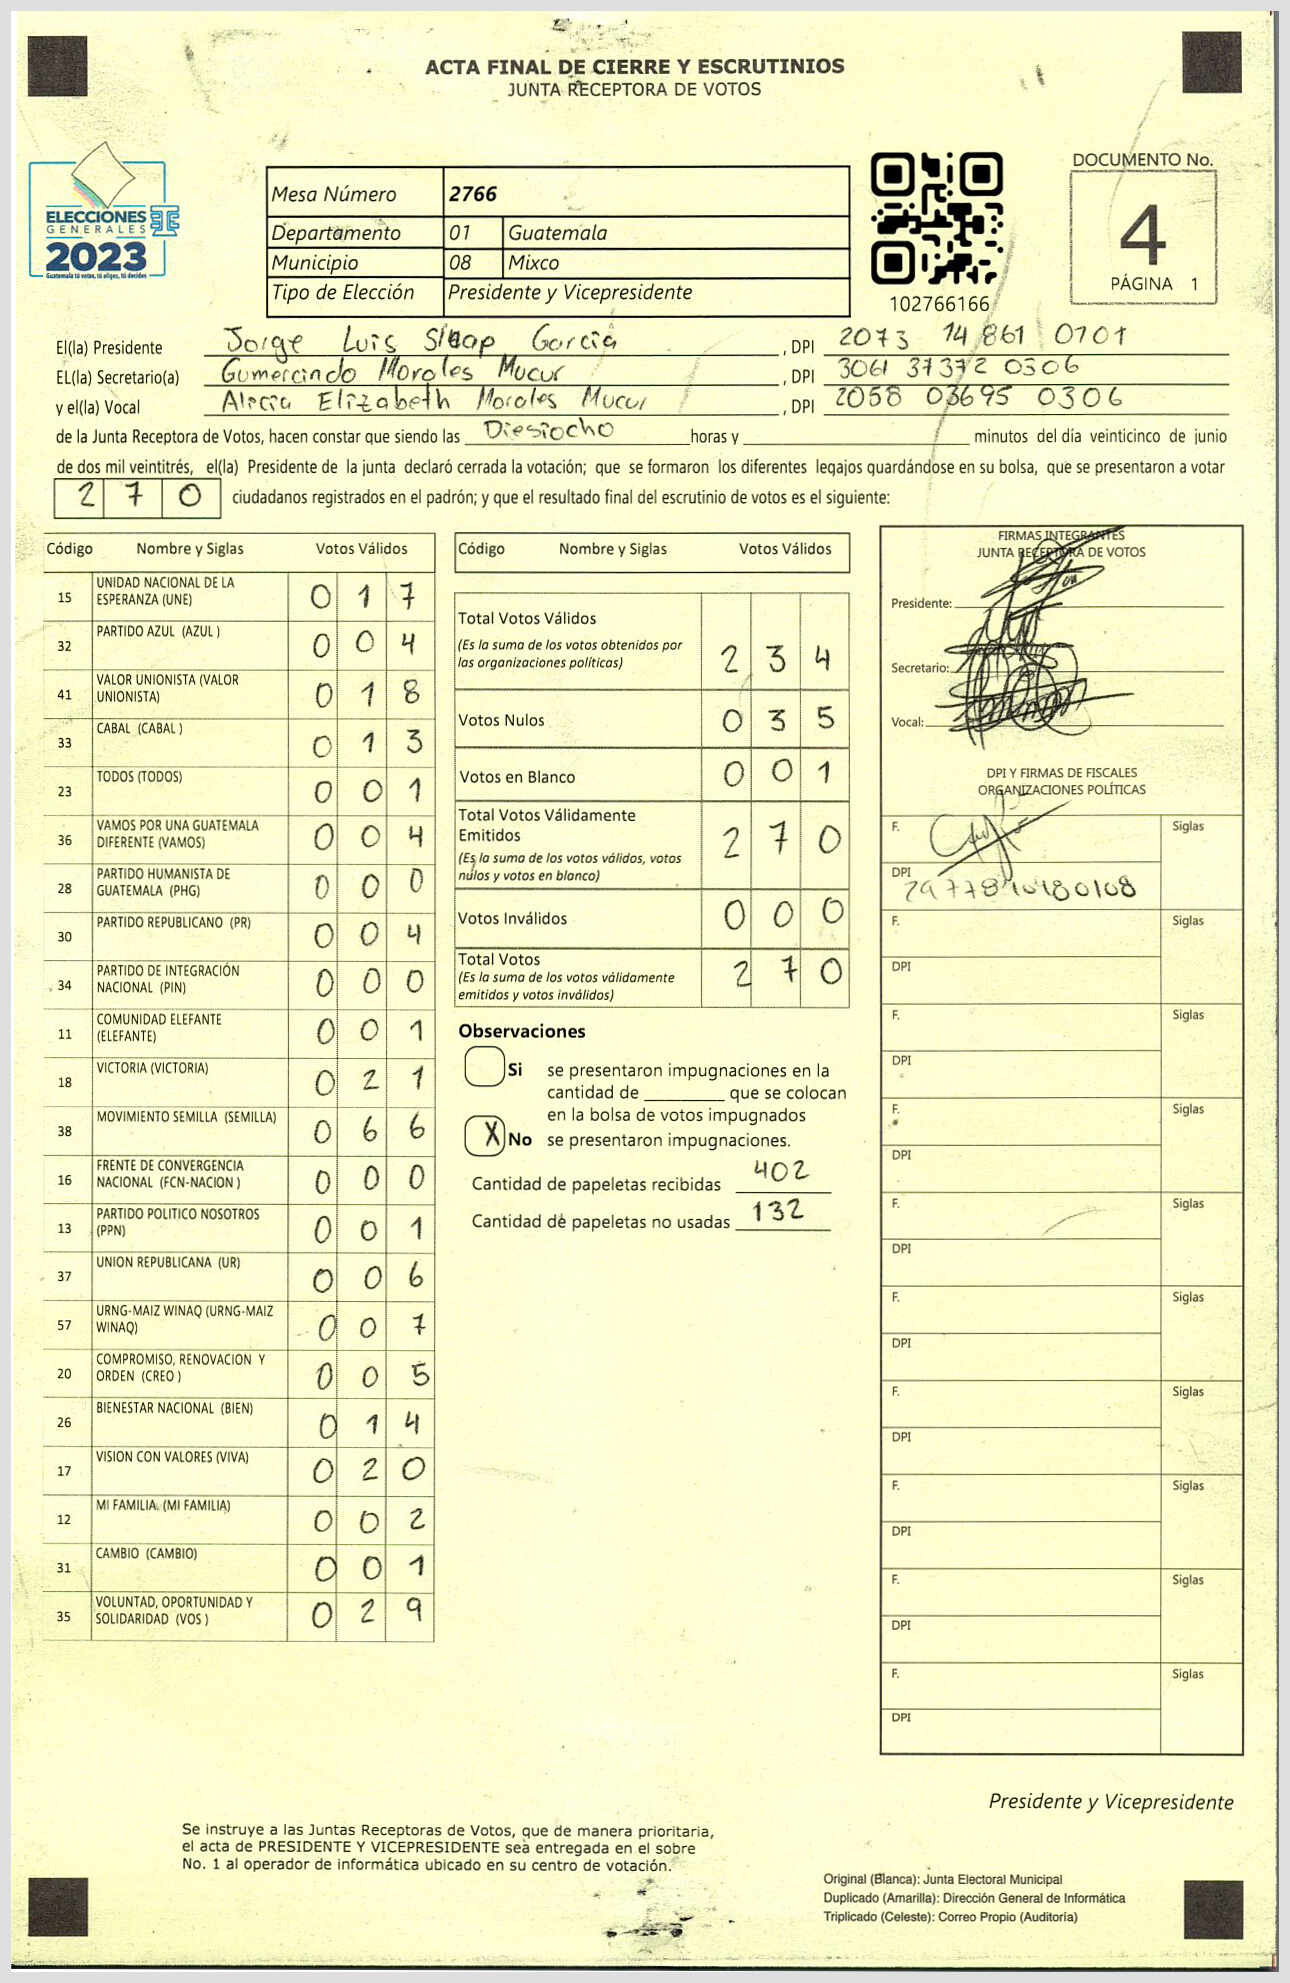 ACTA FINAL DE CIERRE Y ESCRUTINIOS
JUNTA RECEPTORA DE VOTOS
ELECCIONES
GENERALES
2023
Guatemala tú votas, tú eliges, tú decides
Mesa Número 2766
Departamento 01 Guatemala
Municipio 08 Mixco
Tipo de Elección Presidente y Vicepresidente
102766166
DOCUMENTO No.
4
PÁGINA 1
El(la) Presidente Jorge Luis García , DPI 2073 14 861 0101
EL(la) Secretario(a) Gumercindo Morales Mucur , DPI 3061 37372 0306
y el(la) Vocal Alicia Elizabeth Morales Mucur , DPI 2058 03695 0306
de la Junta Receptora de Votos, hacen constar que siendo las Diesiocho horas y minutos del día veinticinco de junio
de dos mil veintitrés, el(la) Presidente de la junta declaró cerrada la votación; que se formaron los diferentes legajos guardándose en su bolsa, que se presentaron a votar
270 ciudadanos registrados en el padrón; y que el resultado final del escrutinio de votos es el siguiente:
Código Nombre y Siglas Votos Válidos
15 UNIDAD NACIONAL DE LA ESPERANZA (UNE) 017
32 PARTIDO AZUL (AZUL ) 004
41 VALOR UNIONISTA (VALOR UNIONISTA) 018
33 CABAL (CABAL ) 013
23 TODOS (TODOS) 001
36 VAMOS POR UNA GUATEMALA DIFERENTE (VAMOS) 004
28 PARTIDO HUMANISTA DE GUATEMALA (PHG) 000
30 PARTIDO REPUBLICANO (PR) 004
34 PARTIDO DE INTEGRACIÓN NACIONAL (PIN) 000
11 COMUNIDAD ELEFANTE (ELEFANTE) 001
18 VICTORIA (VICTORIA) 021
38 MOVIMIENTO SEMILLA (SEMILLA) 066
16 FRENTE DE CONVERGENCIA NACIONAL (FCN-NACION ) 000
13 PARTIDO POLITICO NOSOTROS (PPN) 001
37 UNION REPUBLICANA (UR) 006
57 URNG-MAIZ WINAQ (URNG-MAIZ WINAQ) 007
20 COMPROMISO, RENOVACION Y ORDEN (CREO ) 005
26 BIENESTAR NACIONAL (BIEN) 014
17 VISION CON VALORES (VIVA) 020
12 MI FAMILIA (MI FAMILIA) 002
31 CAMBIO (CAMBIO) 001
35 VOLUNTAD, OPORTUNIDAD Y SOLIDARIDAD (VOS ) 029
Código Nombre y Siglas Votos Válidos
Total Votos Válidos 234
(Es la suma de los votos obtenidos por
las organizaciones políticas)
Votos Nulos 035
Votos en Blanco 001
Total Votos Válidamente
Emitidos 270
(Es la suma de los votos válidos, votos
nulos y votos en blanco)
Votos Inválidos 000
Total Votos 270
(Es la suma de los votos válidamente
emitidos y votos inválidos)
Observaciones
Si se presentaron impugnaciones en la
cantidad de que se colocan
en la bolsa de votos impugnados
X No se presentaron impugnaciones.
Cantidad de papeletas recibidas 402
Cantidad de papeletas no usadas 132
FIRMAS INTEGRANTES
JUNTA RECEPTORA DE VOTOS
Presidente:
Secretario:
Vocal:
DPI Y FIRMAS DE FISCALES
ORGANIZACIONES POLÍTICAS
F. Siglas
DPI
F. Siglas
DPI
F. Siglas
DPI
F. Siglas
DPI
F. Siglas
DPI
F. Siglas
DPI
F. Siglas
DPI
F. Siglas
DPI
F. Siglas
DPI
F. Siglas
DPI
Presidente y Vicepresidente
Se instruye a las Juntas Receptoras de Votos, que de manera prioritaria,
el acta de PRESIDENTE Y VICEPRESIDENTE sea entregada en el sobre
No. 1 al operador de informática ubicado en su centro de votación.
Original (Blanca): Junta Electoral Municipal
Duplicado (Amarilla): Dirección General de Informática
Triplicado (Celeste): Correo Propio (Auditoría)